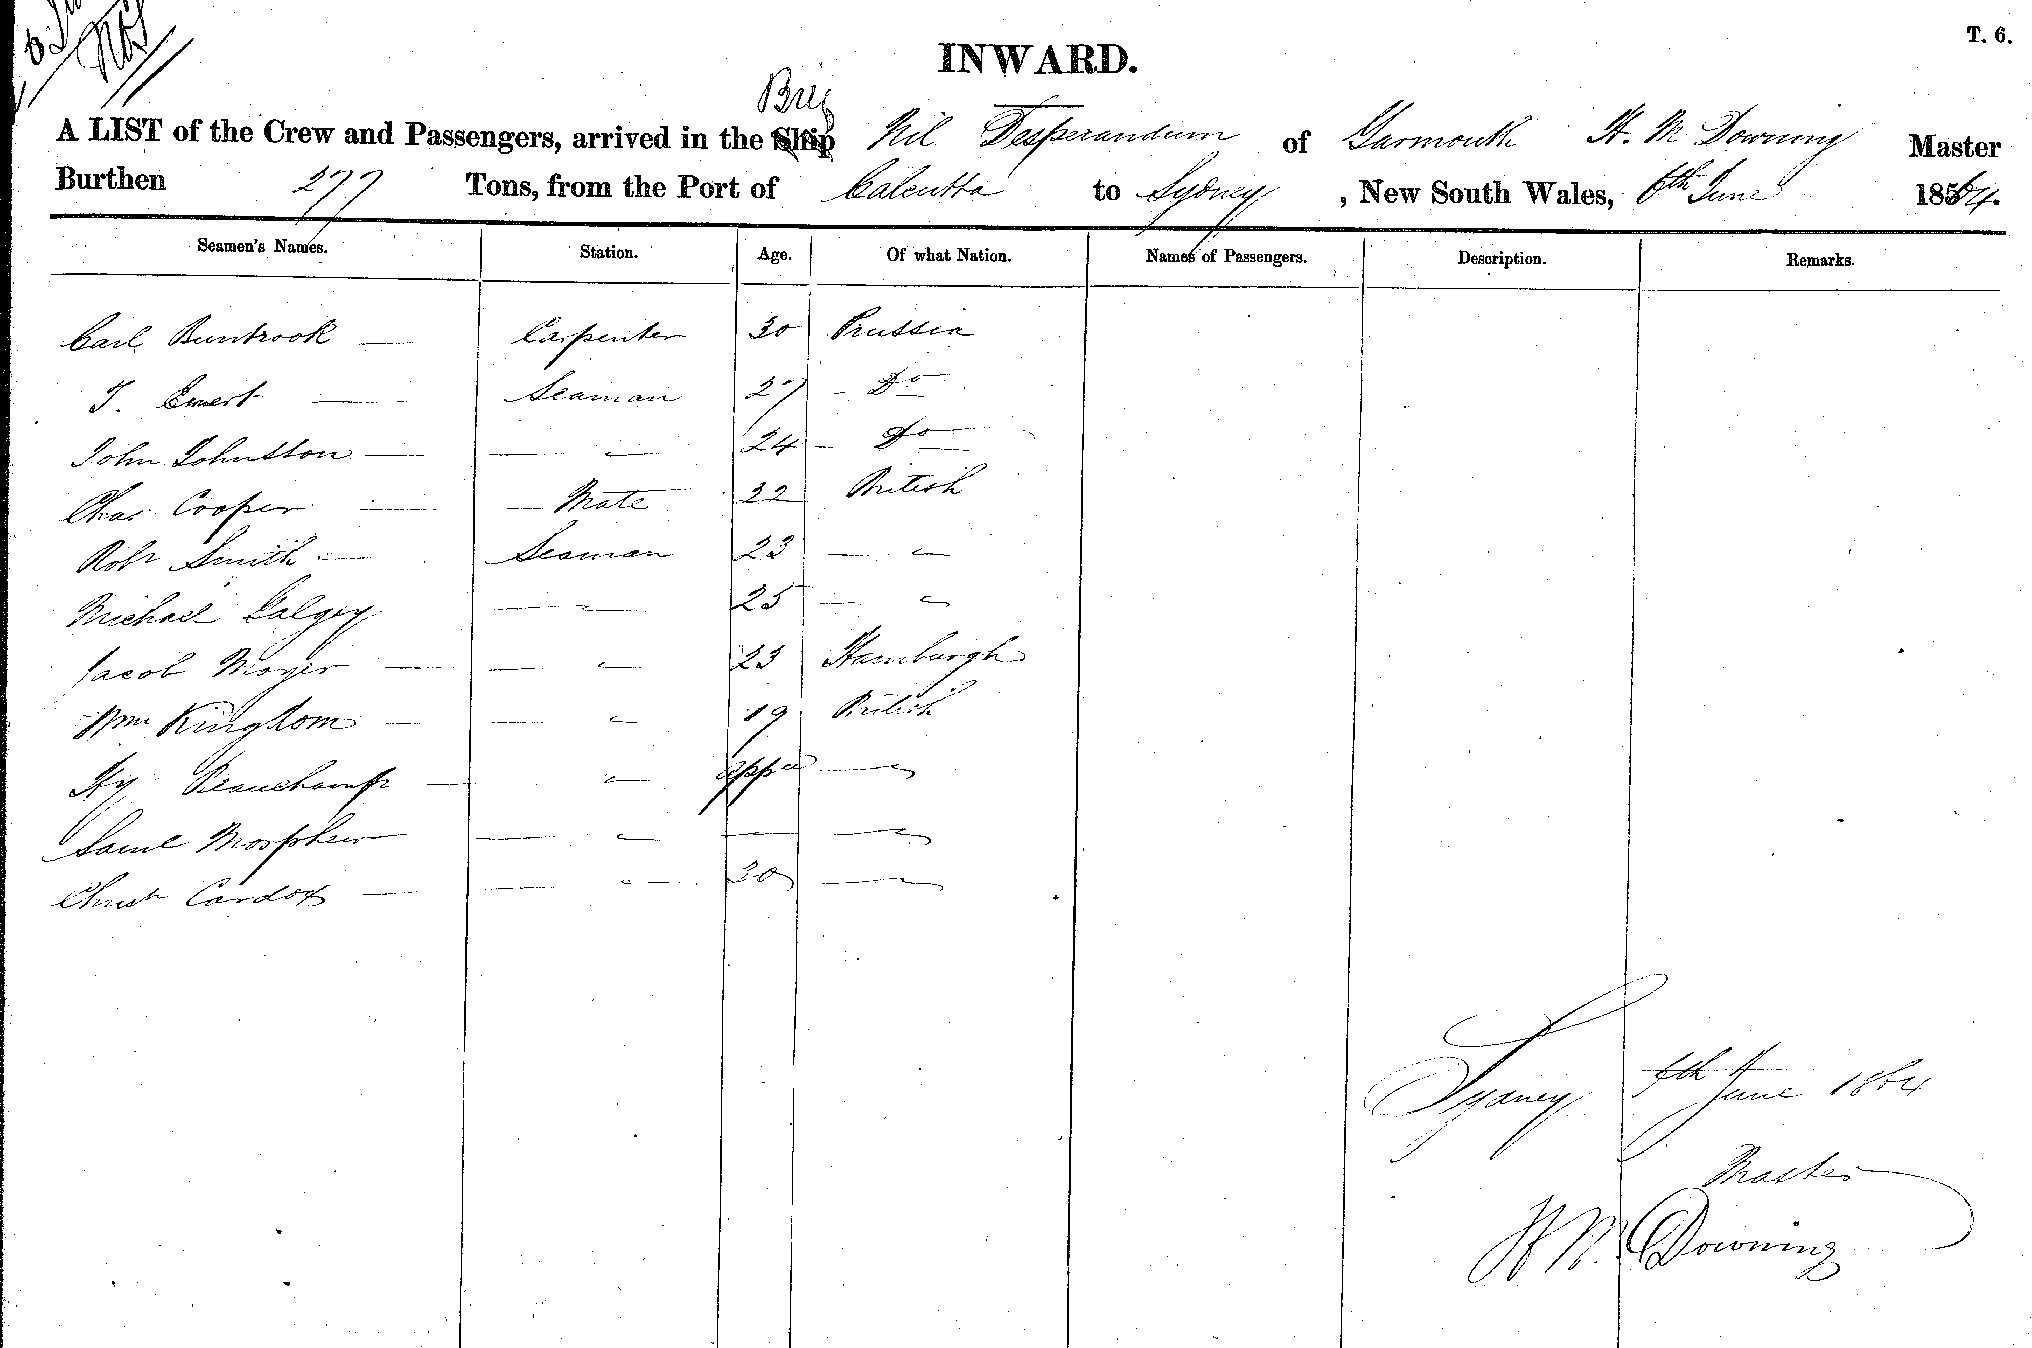 T. 6.
INWARD.
Brig
A LIST of the Crew and Passengers, arrived in the Ship Nil Desperandum of Yarmouth H. M Downing Master
Burthen 277 Tons, from the Port of Calcutta to Sydney, New South Wales, 6th June 1864.
Seamen's Names. Station. Age. Of what Nation. Names of Passengers. Description. Remarks.
Carl Buntrook — Carpenter 30 Prussia
J. Ewert — Seaman 27 - Do
John Johnston — — " — 24 - Do
Chas Cooper — — Mate 22 British
Robt Smith — Seaman 23 — "
Michael Galgey — " — 25 — "
Jacob Moyer — — " — 23 Hamburgh
Wm Kingdom — — " 19 British
Hy Beauchamp — " appce — "
Saml Morphew — " — — — "
Christ Cardox — — " — 30 — "
Sydney 6th June 1864
Master
H M. Downing